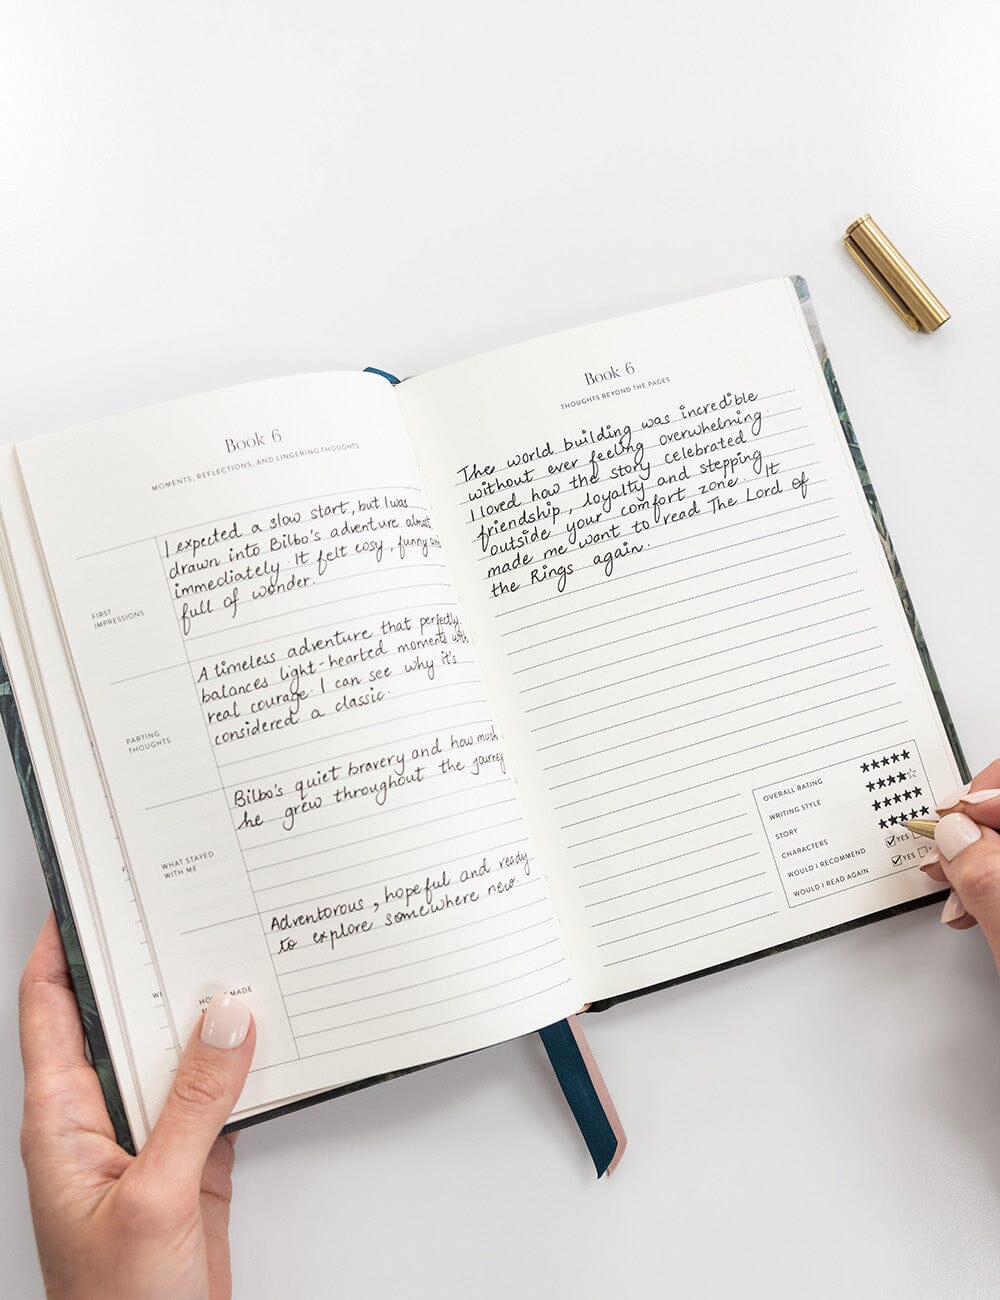 Book 6
MOMENTS, REFLECTIONS, AND LINGERING THOUGHTS
FIRST
IMPRESSIONS
I expected a slow start, but I was
drawn into Bilbo's adventure almost
immediately. It felt cosy, funny and
full of wonder.
PARTING
THOUGHTS
A timeless adventure that perfectly
balances light-hearted moments with
real courage. I can see why it's
considered a classic.
WHAT STAYED
WITH ME
Bilbo's quiet bravery and how much
he grew throughout the journey
MADE
Adventorous, hopeful and ready
to explore somewhere new.
Book 6
THOUGHTS BEYOND THE PAGES
The world building was incredible
without ever feeling overwhelming.
I loved how the story celebrated
friendship, loyalty and stepping
outside your comfort zone. It
made me want to read The Lord of
the Rings again.
OVERALL RATING ★★★★★
WRITING STYLE ★★★★☆
STORY ★★★★★
CHARACTERS ★★★★★
WOULD I RECOMMEND ☑ YES
WOULD I READ AGAIN ☑ YES